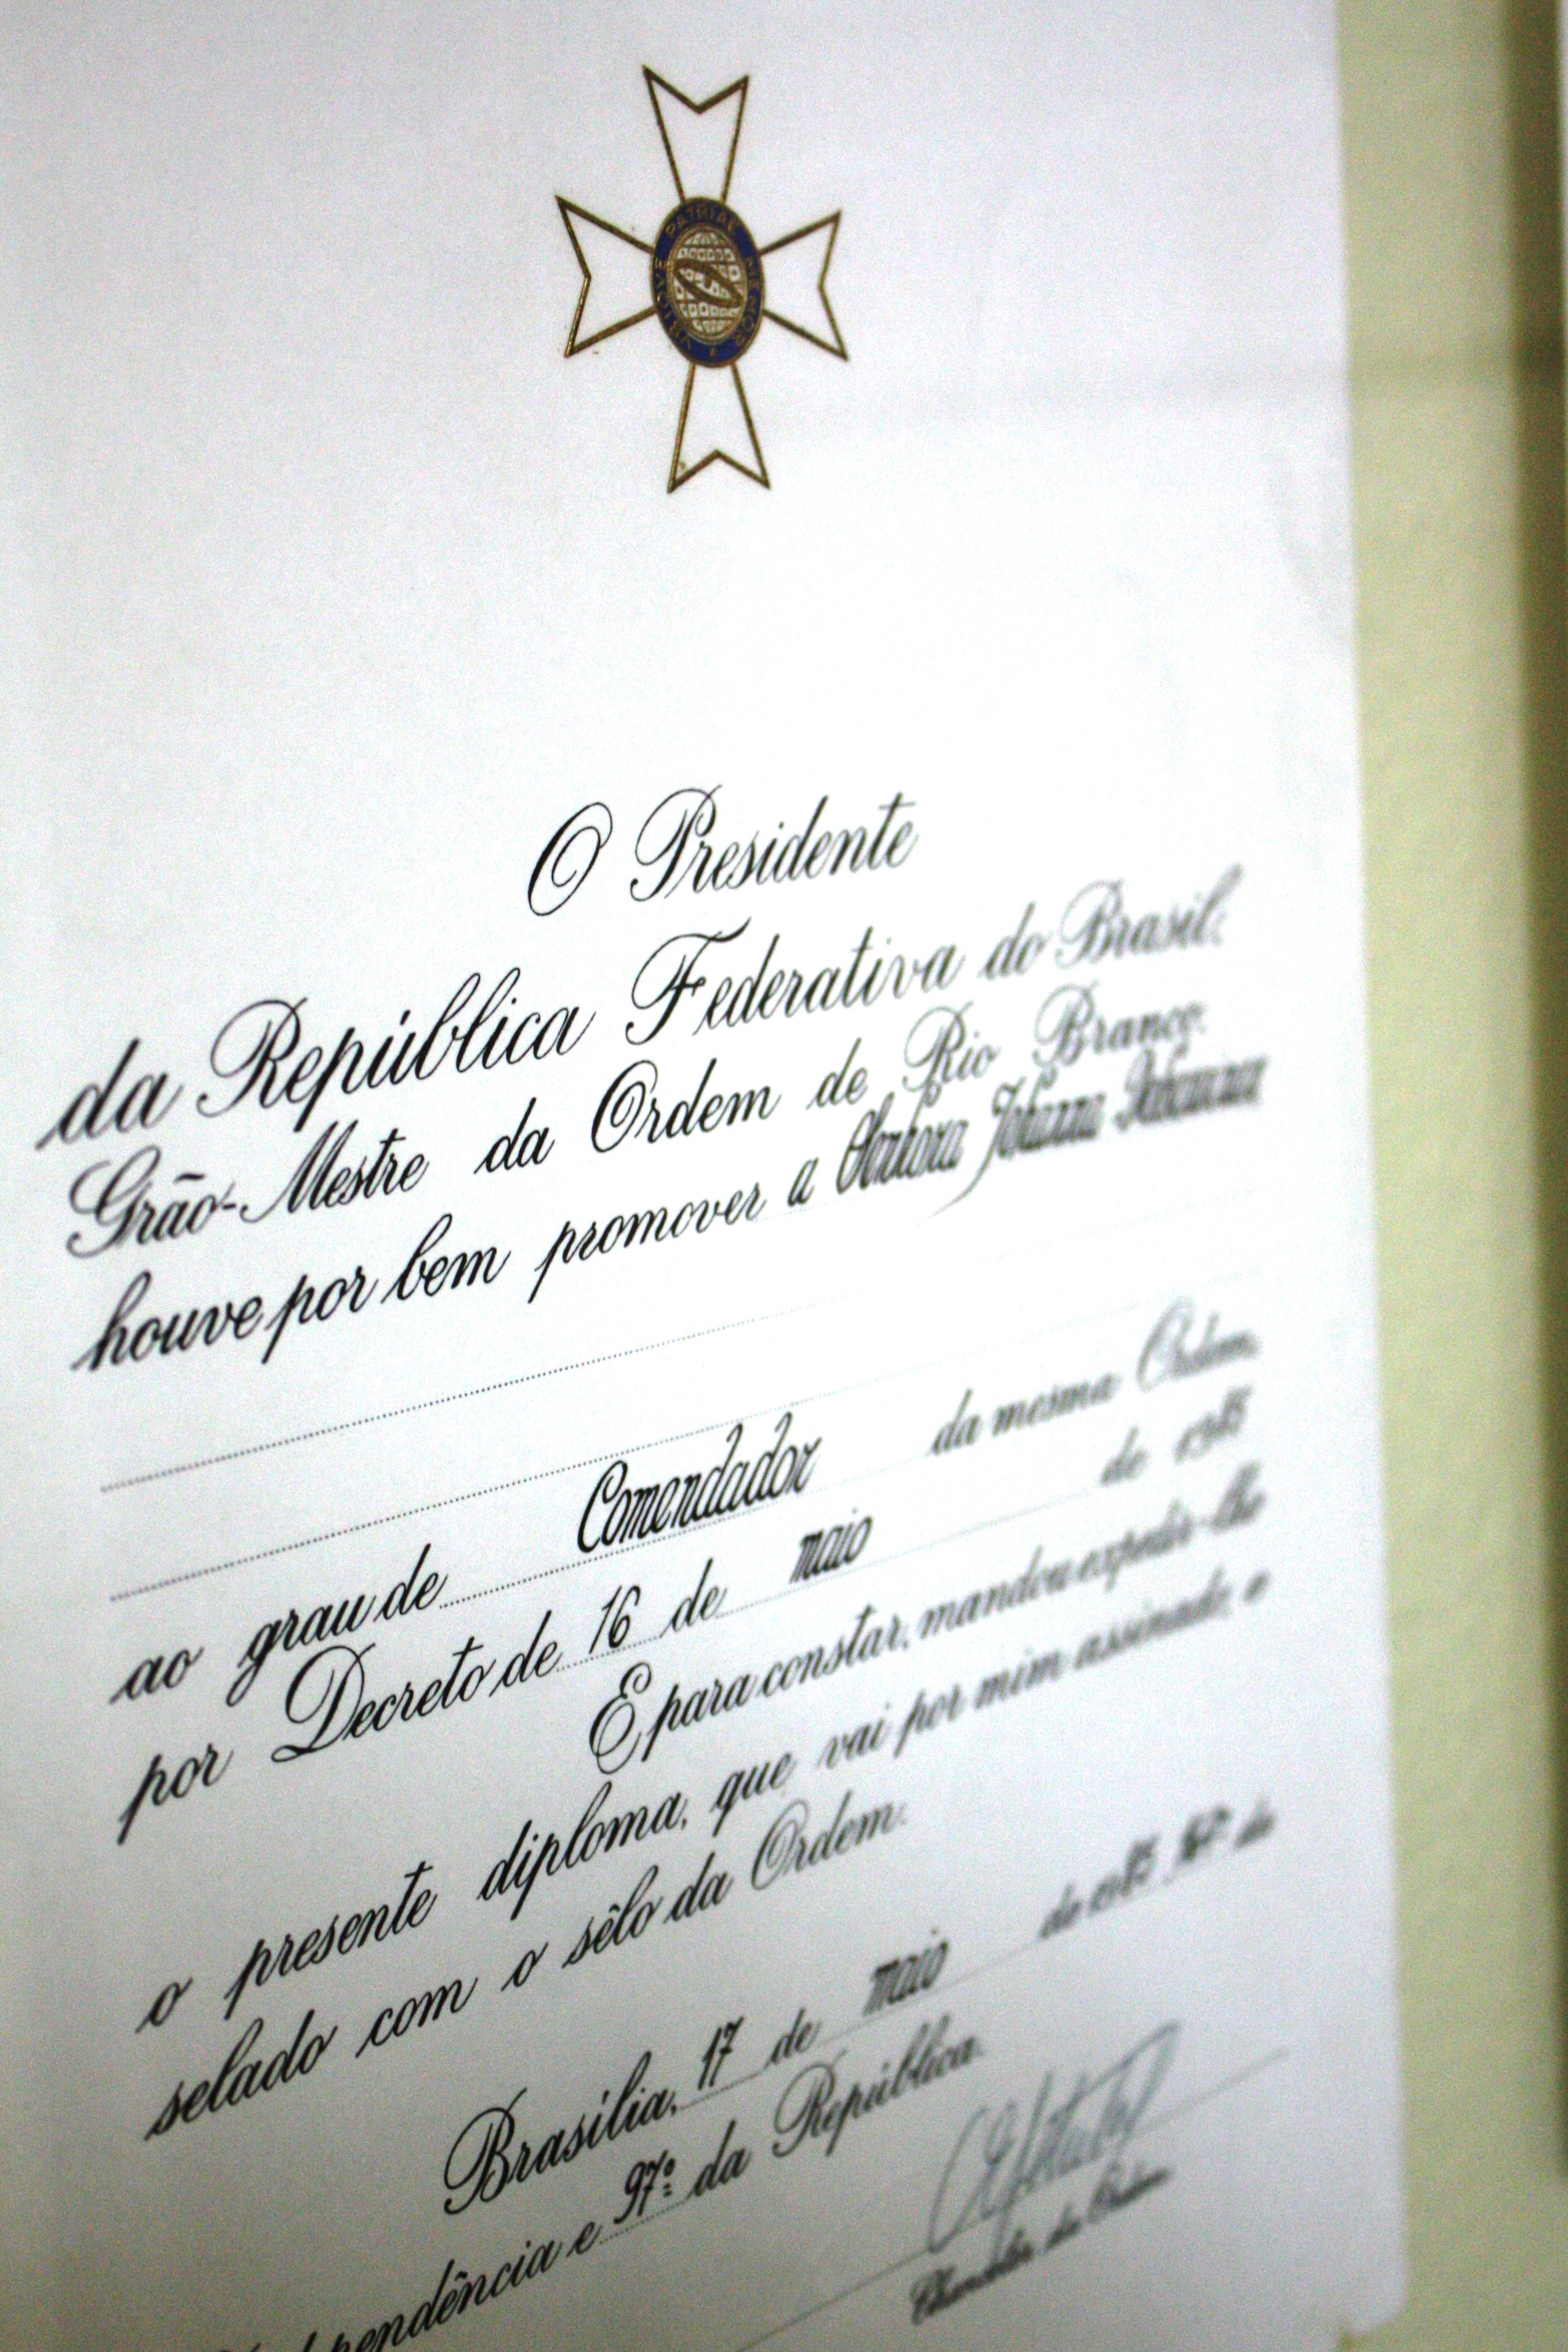 UBIQUE PATRIAE MEMOR
O Presidente
da República Federativa do Brasil,
Grão-Mestre da Ordem de Rio Branco,
houve por bem promover a Senhora Johanna
ao grau de Comendador da mesma Ordem,
por Decreto de 16 de maio de
E para constar, mandou expedir-lhe
o presente diploma, que vai por mim assinado, e
selado com o sêlo da Ordem.
Brasília, 17 de maio de
dependência e 97º da República.
da Ordem